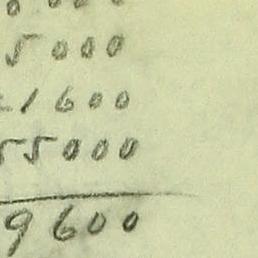 5000
1600
55000
9600